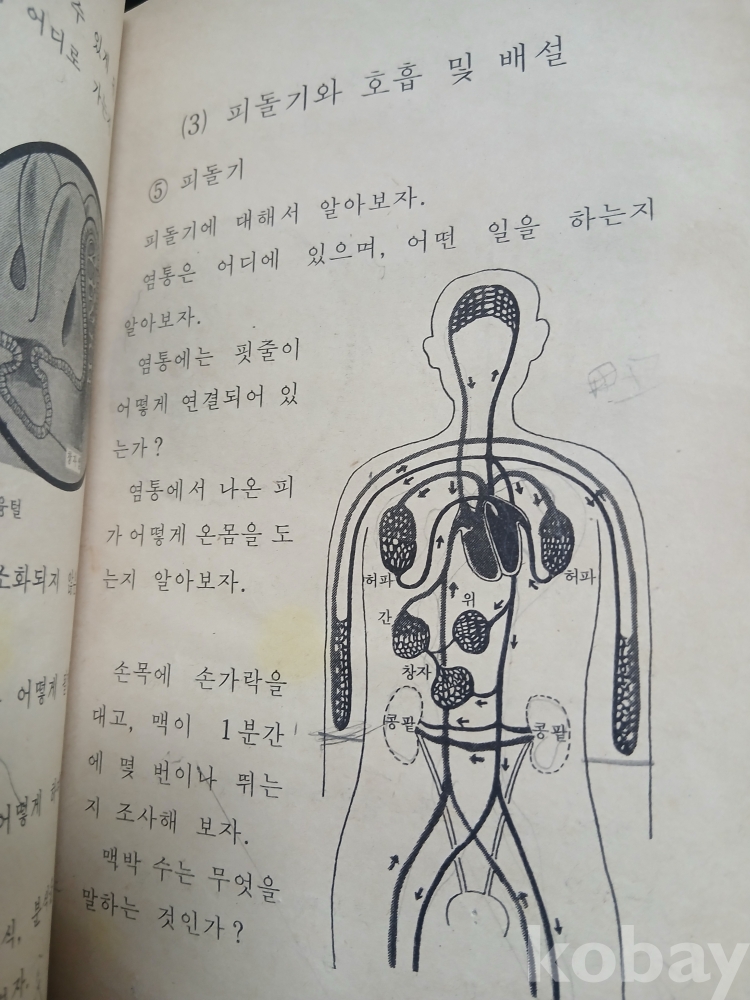 수 있게
어디로
가는
융털
조화되지
어떻게
어떻게
(3) 피돌기와 호흡 및 배설
⑤ 피돌기
피돌기에 대해서 알아보자.
염통은 어디에 있으며, 어떤 일을 하는지
알아보자.
염통에는 핏줄이
어떻게 연결되어 있
는가?
염통에서 나온 피
가 어떻게 온몸을 도
는지 알아보자.
손목에 손가락을
대고, 맥이 1분간
에 몇 번이나 뛰는
지 조사해 보자.
맥박 수는 무엇을
말하는 것인가?
허파
허파
간
위
창자
콩팥
콩팥
kobay